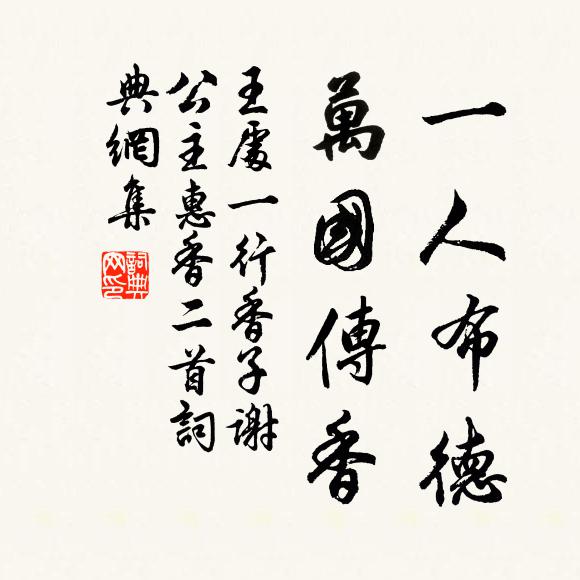 一人布德
萬國傳香
王處一行香子謝
公主惠香二首詞
典網集
詞典
网印